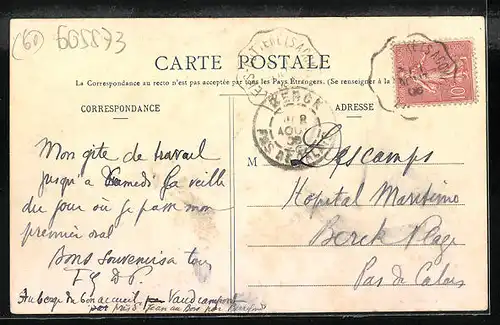 (60) 605573
CARTE POSTALE
La Correspondance au recto n'est pas acceptée par tous les Pays Étrangers. (Se renseigner à la
CORRESPONDANCE
ADRESSE
BERCK
AOUT
PAS DE CALAIS
10
Mon gite de travail
jusqu'a Samedi La veille
du jour où je passe mon
premier oral
Bons souvenirs a tous
Auberge du bon accueil Vaudrampont
près St Jean au Bois par Pierrefonds
M Descamps
Hopital Maritime
Berck Plage
Pas de Calais